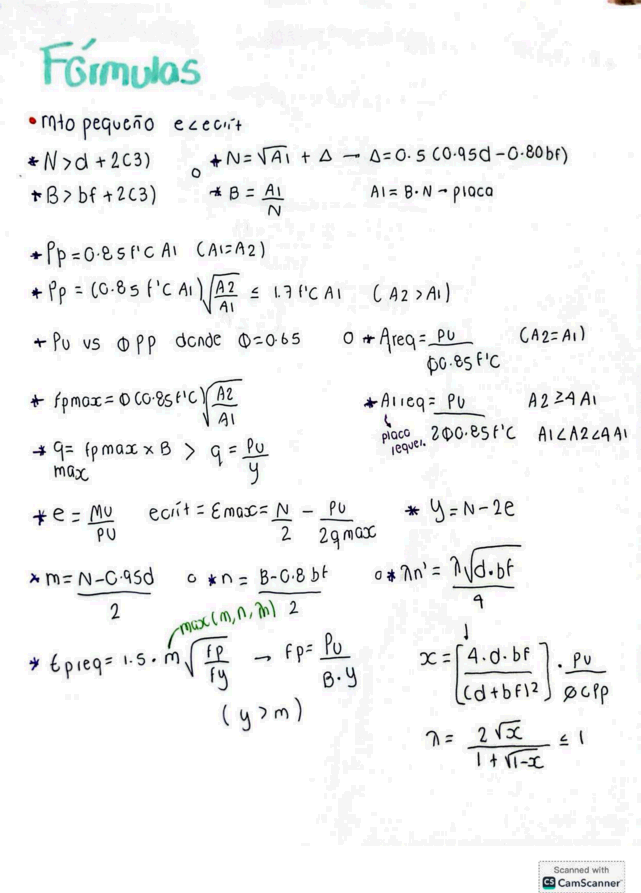 Fórmulas
• mto pequeño e<ecrit
* N>d+2(3) o * N=√A1 + Δ → Δ=0.5(0.95d-0.80bf)
* B>bf+2(3) * B=A1/N A1=B·N → placa
* Pp=0.85f'c A1 (A1=A2)
* Pp=(0.85f'c A1)√(A2/A1) ≤ 1.7f'c A1 (A2>A1)
* Pu vs ΦPp donde Φ=0.65 o * Areq=Pu/Φ0.85f'c (A2=A1)
* fpmax=Φ(0.85f'c)√(A2/A1) * A1req=Pu/2Φ0.85f'c A2≥4A1
placa requer. A1<A2<4A1
* qmax=fpmax×B > q=Pu/y
* e=Mu/Pu ecrit=Emax=N/2-Pu/2qmax * y=N-2e
* m=N-0.95d/2 o * n=B-0.8bf/2 o * λn'=λ√d·bf/4
max(m,n,λn)
* tpreq=1.5·m√(fp/fy) → fp=Pu/B·y x=[4·d·bf/(d+bf)²]·Pu/ΦcPp
(y>m)
λ=2√x/1+√1-x ≤1
Scanned with
CS CamScanner